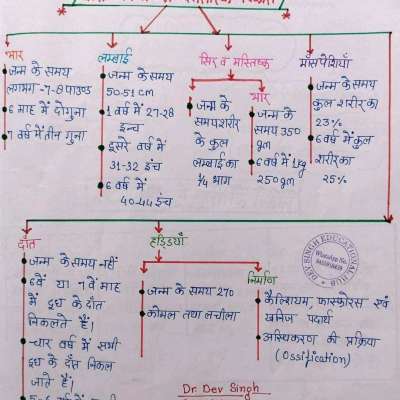 भार
जन्म के समय
लगभग -7-8 पाउण्ड
6 माह में दोगुना
1 वर्ष में तीन गुना
लम्बाई
जन्म के समय
50-51 cm
1 वर्ष में 27-28
इन्च
दूसरे वर्ष में
31-32 इंच
6 वर्ष में
40-44 इंच
सिर व मस्तिष्क
जन्म के
समय शरीर
के कुल
लम्बाई का
1/4 भाग
भार
जन्म के
समय 350
gm
6 वर्ष में 1 kg
250 gm
माँसपेशियाँ
जन्म के समय
कुल शरीर का
23%
6 वर्ष में कुल
शरीर का
25%
दाँत
जन्म के समय नहीं
6वें या 7वें माह
में दूध के दाँत
निकलते हैं।
चार वर्ष में सभी
दूध के दाँत निकल
जाते हैं।
हड्डियाँ
जन्म के समय 270
कोमल तथा लचीला
निर्माण
कैल्शियम, फास्फोरस एवं
खनिज पदार्थ
अस्थिकरण की प्रक्रिया
(Ossification)
DEV SINGH EDUCATIONAL HUB
WhatsApp No.
Dr. Dev Singh